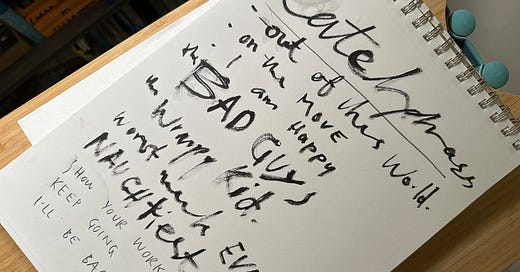 Catchphrases
- out of this World.
- on the MOVE
- i am Happy
the BAD GUYS
a Wimpy Kid.
worst week EVE
NAUGHTiEST
SHOW YOUR WORK
KEEP GOING
I'LL BE BAC